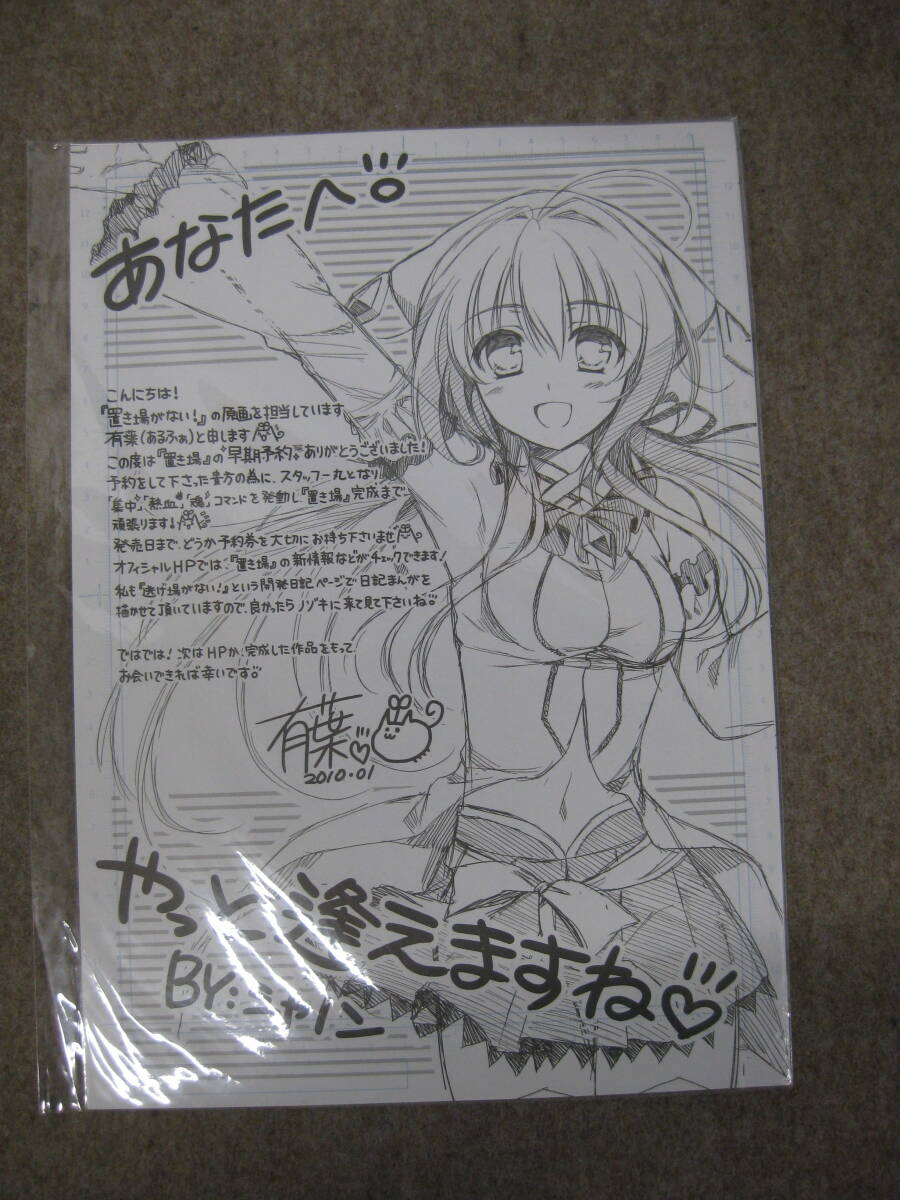 あなたへ
こんにちは!
『置き場がない!』の原画を担当しています
有葉(あるふぁ)と申します
この度は『置き場』の早期予約ありがとうございました!
予約をして下さった貴方の為に、スタッフ一丸となり
「集中」「熱血」「魂」コマンドを発動し、『置き場』完成まで
頑張ります!
発売日まで、どうか予約券を大切にお持ち下さいませ
オフィシャルHPでは、『置き場』の新情報などがチェックできます!
私も『逃げ場がない!』という開発日記ページで日記まんがを
描かせて頂いていますので、良かったらノゾキに来て見て下さいね
ではでは!次はHPか、完成した作品をもって
お会いできれば幸いです
有葉
2010.01
やっと逢えますね
BY:シャノン